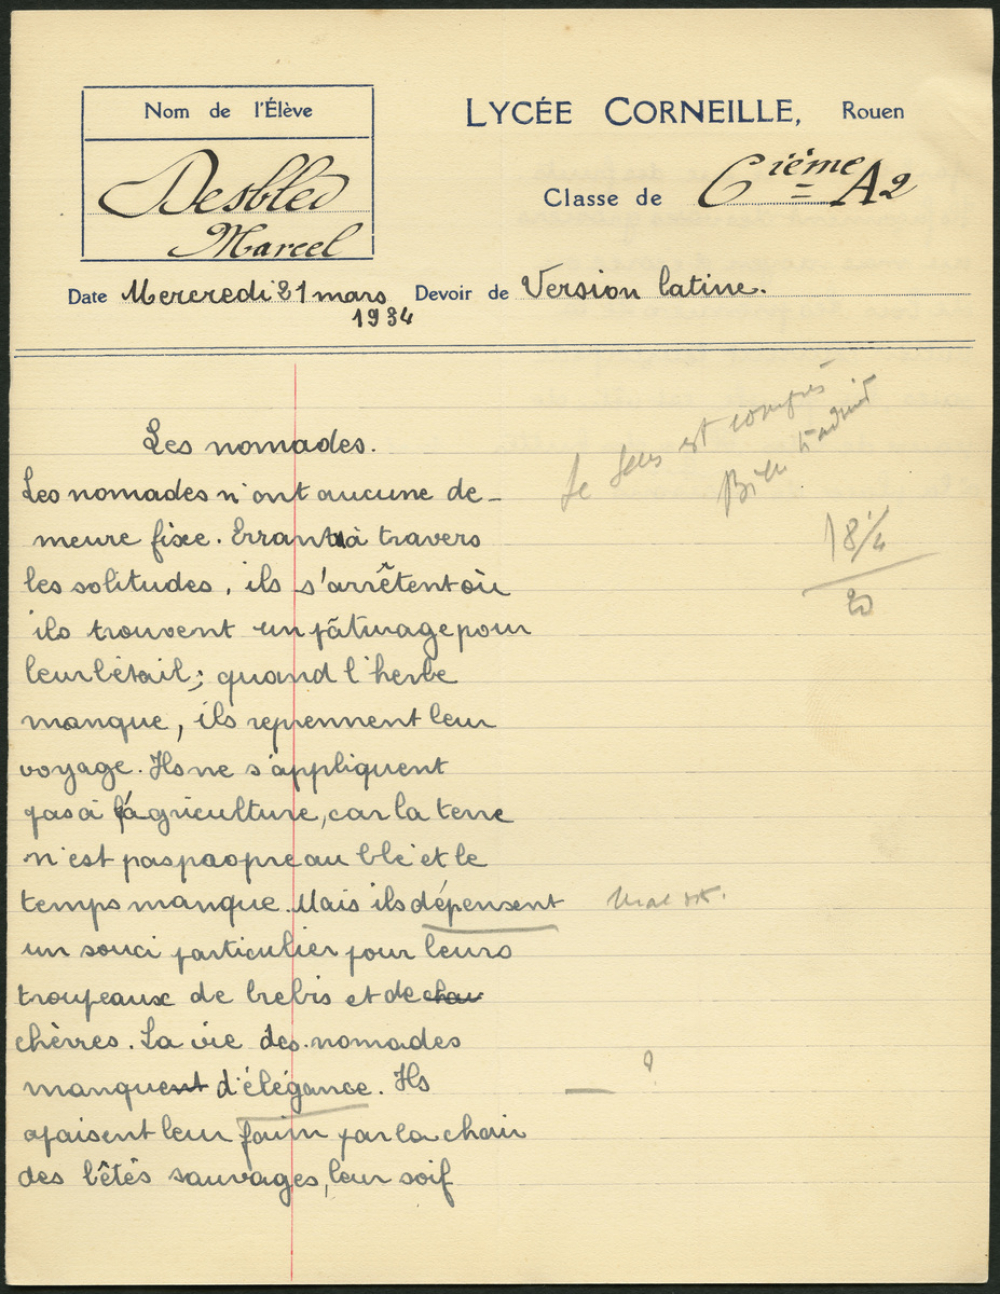 Nom de l'Élève
Desbled
Marcel
LYCÉE CORNEILLE, Rouen
Classe de 6ième A2
Date Mercredi 21 mars 1934
Devoir de Version latine.
Le sens est compris
Bien traduit
18 1/2
20
Les nomades.
Les nomades n'ont aucune de-
meure fixe. Errant à travers
les solitudes, ils s'arrêtent où
ils trouvent un pâturage pour
leur bétail; quand l'herbe
manque, ils reprennent leur
voyage. Ils ne s'appliquent
pas à l'agriculture, car la terre
n'est pas propre au blé et le
temps manque. Mais ils dépensent
Mal dit.
un souci particulier pour leurs
troupeaux de brebis et de chev
chèvres. La vie des nomades
manquent d'élégance. Ils
?
apaisent leur faim par la chair
des bêtes sauvages, leur soif